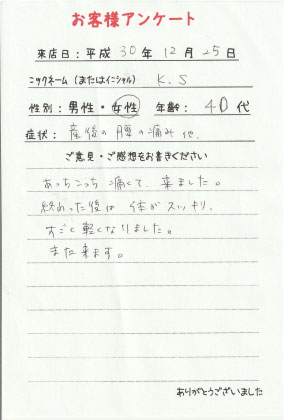 お客様アンケート
来店日:平成 30 年 12 月 25 日
ニックネーム(またはイニシャル) K.S
性別:男性・女性 年齢:40代
症状:産後の腰の痛み 他.
ご意見・ご感想をお書きください
あっちこっち痛くて、来ました。
終わった後は 体がスッキリ、
すごく軽くなりました。
また来ます。
ありがとうございました